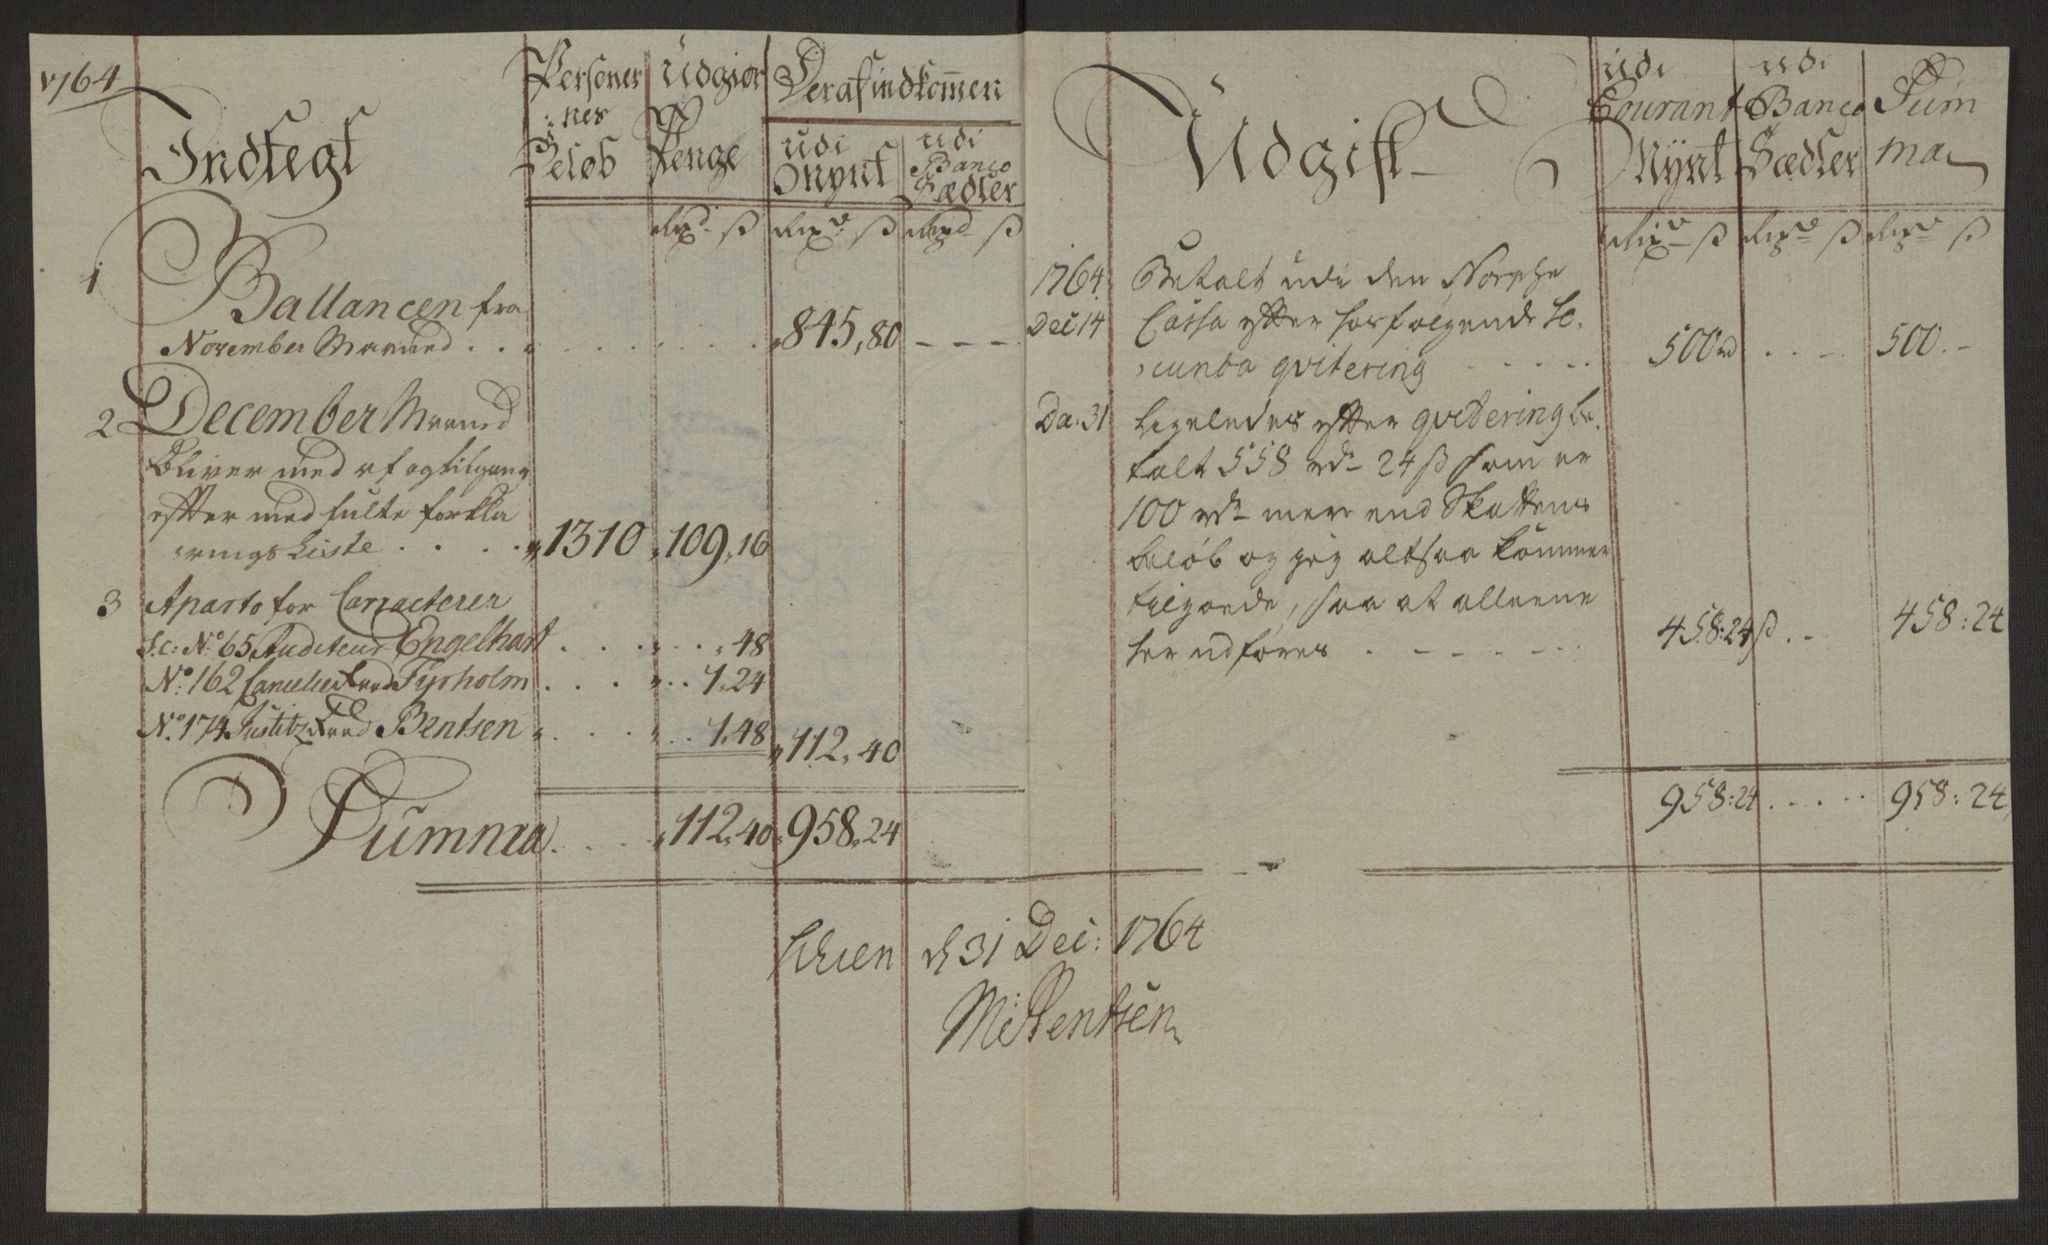 1764
Indtegt
Personer
nes
Beløb
Udgiør
Penge
Deraf indkom̄en
udi
Mynt
udi
Banco
Sædler
Rixd ß Rixd ß Rixd ß
1 Ballancen fra
November Maaned . . . . . . . 845,80 - - -
2 December Maaned
bliver med af og tilgang
effter medfulte forkla
rings Liste . . . . 1310 109,16
3 Aparto for Caracterer
Sc: No: 65 Auditeur Engelhart . . . . . . 48
No: 162 Cancelie Raad Tyrholm . . . . . . 1.24
No. 174 Justitz Raad Bentsen . . . . . . 1.48 112.40
Summa . . . . 112.40 958.24
Udgift
udi
Courant
Mÿnt
udi
Banco
Sædler
Sum
ma
Rixd ß Rixd ß Rixd ß
1764. Betalt udi den Norshe
Dec: 14 Cassa effter hosfølgende Se,
cunda qvitering . . . . . 500 rd . . - - 500. -
Da: 31 ligeledes effter qvitering be,
talt 558 rdr 24 ß som er
100 rdr mere end Skattens
beløb og jeg altsaa kommer
tilgoede, saa at alleene
her udføres . - - - - - - 458:24 ß . - 458:24
958:24 . . . . . 958:24
Schien d 31 Dec: 1764
M: Bentsen